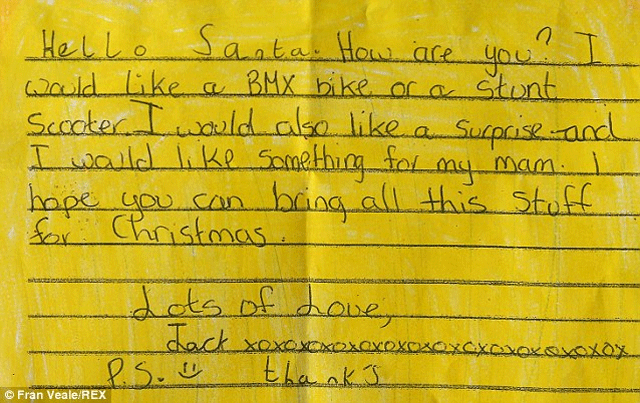 Hello Santa. How are you? I
would like a BMX bike or a stunt
Scooter. I would also like a surprise and
I would like something for my mam. I
hope you can bring all this stuff
for Christmas.
Lots of Love,
Jack xoxoxoxoxoxoxoxoxoxoxoxoxox
P.S. thanks
© Fran Veale/REX